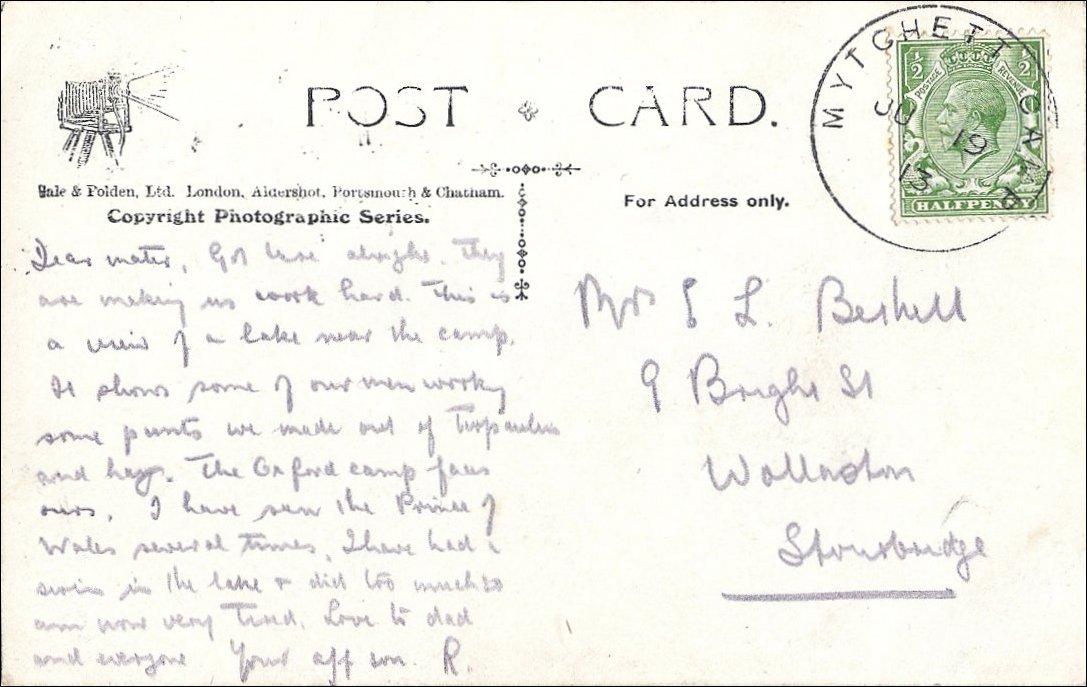 POST CARD.
Gale & Polden, Ltd. London, Aldershot, Portsmouth & Chatham.
Copyright Photographic Series.
For Address only.
MYTCHETT CAMP
JU 19 13
½ ½
POSTAGE REVENUE
HALFPENNY
Dear mater, Got here alright. They
are making us work hard. This is
a view of a lake near the camp.
It shows some of our men working
some punts we made out of Tarpaulins
and hay. The Oxford camp faces
ours. I have seen the Prince of
Wales several times. I have had a
swim in the lake & did too much so
am now very Tired. Love to dad
and everyone Your aff son. R.
Mrs L.
9 Bright St
Wollaston
Stourbridge